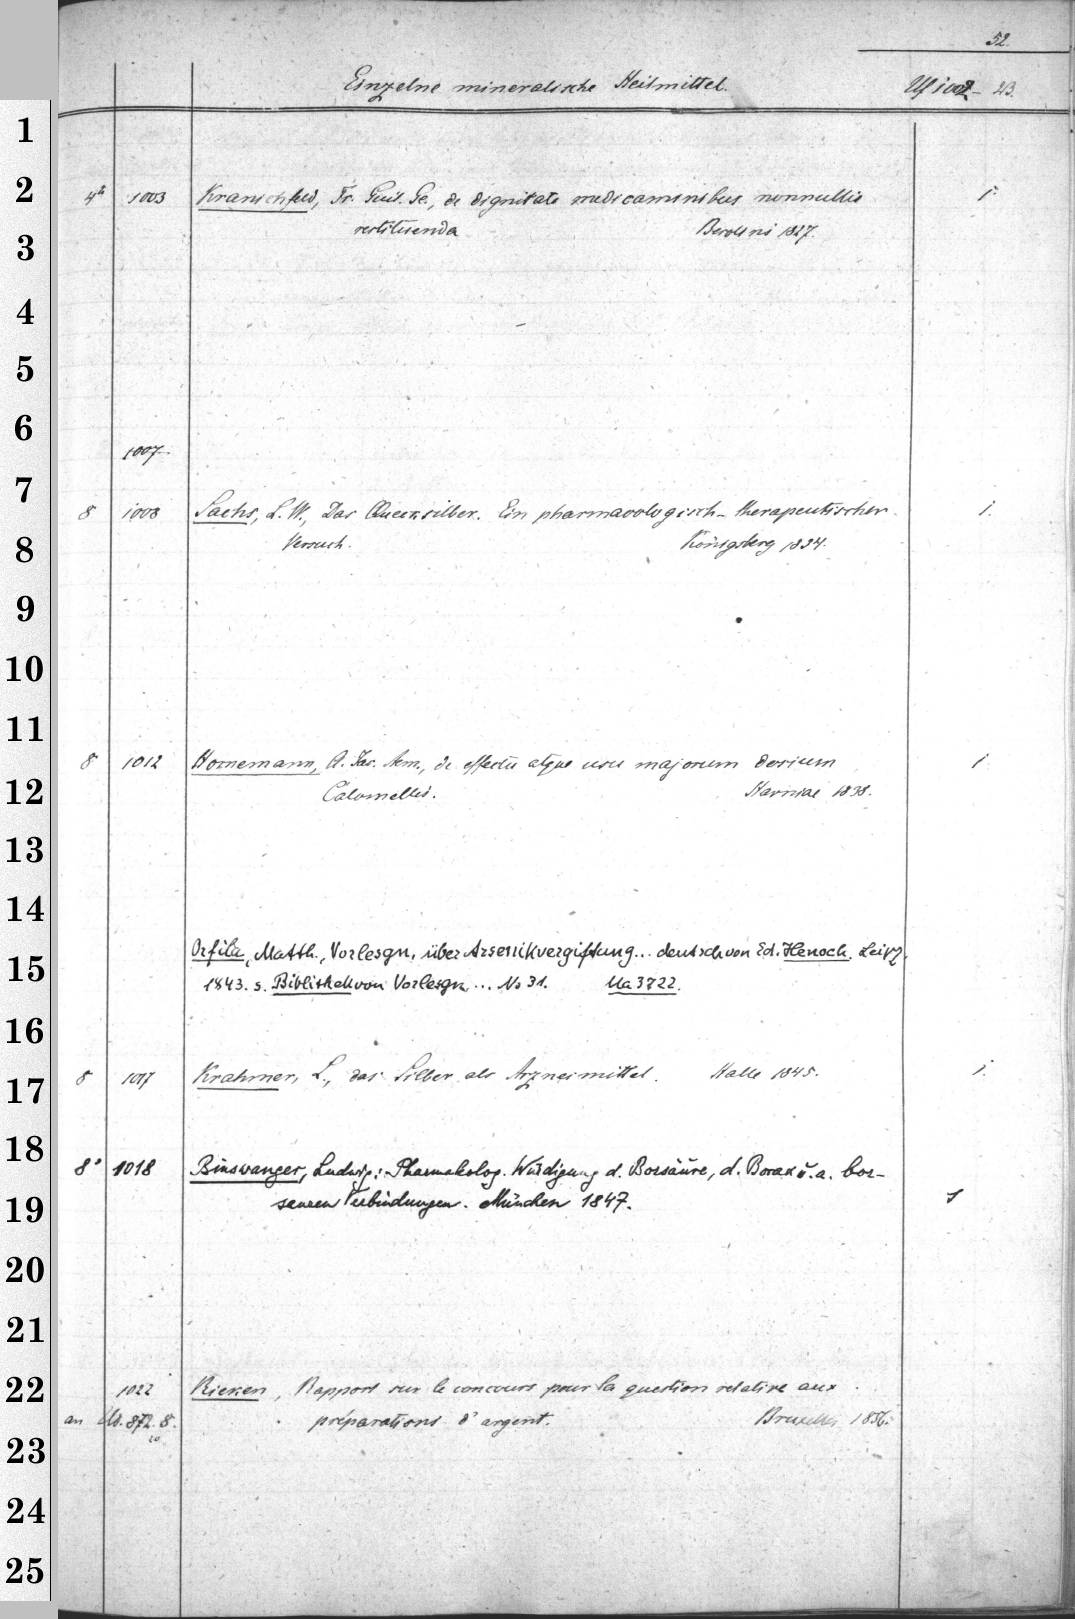 52.
Einzelne mineralische Heilmittel. 23.
1
2
4° 1003 Kranichfeld, Fr. Guil. Ge., de dignitate medicaminibus nonnullis 1
restituenda Berolini 1827.
3
4
5
6
1007
7
8 1008 Sachs, L. W., Das Quecksilber. Ein pharmacologisch-therapeutischer 1.
Versuch. Königsberg 1834.
8
9
10
11
8 1012 Hornemann, A. Jac. Aem., de effectu atque usu majorum dosium 1
Calomellis. Havniae 1838.
12
13
14
Orfila, Matth., Vorlesgn. über Arsenikvergiftung... deutsch von Ed. Henoch. Leipz.
15
1843. s. Bibliothek von Vorlesgn... No 31. Ua 3722.
16
8 1017 Krahmer, L., das Silber als Arzneimittel. Halle 1845. 1.
17
18
8° 1018 Binswanger, Ludwig: Pharmakolog. Würdigung d. Borsäure, d. Borax u. a. bor-
sauren Verbindungen. München 1847. 1
19
20
21
22
1022 Rieken, Rapport sur le concours pour la question relative aux
an Us. 872. 8. préparations d'argent. Bruxelles 1856.
10
23
24
25